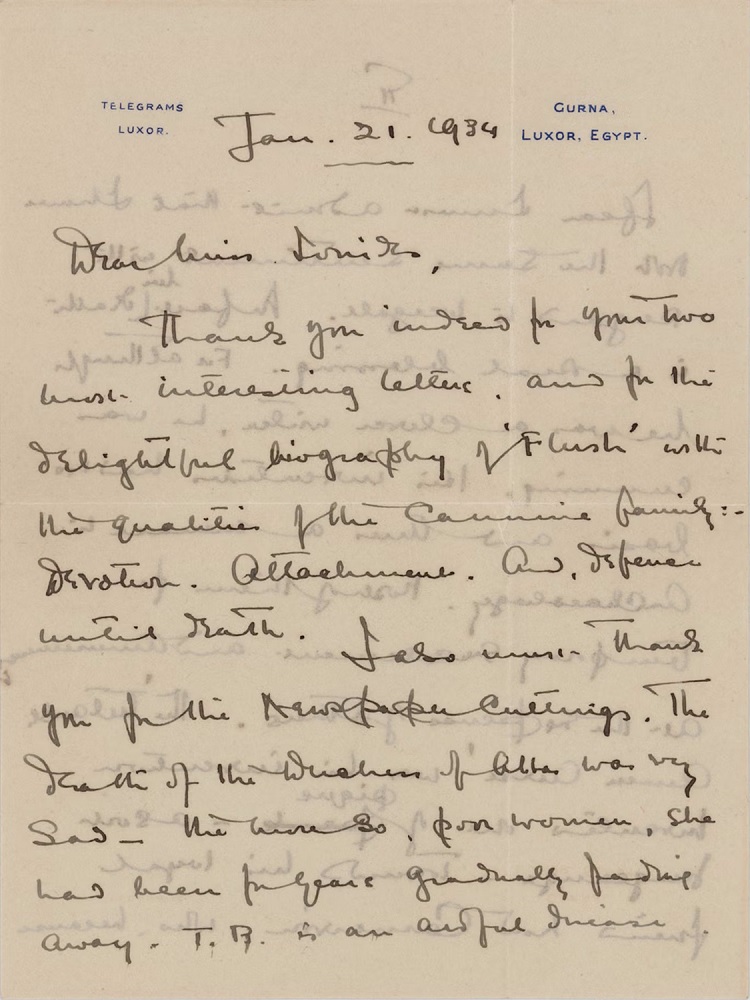 TELEGRAMS
LUXOR.
GURNA,
LUXOR, EGYPT.
Jan. 21. 1934
Dear Miss Ionides,
Thank you indeed for your two
most interesting letters, and for the
delightful biography of 'Flush' with
the qualities of the Cannine family:-
Devotion. Attachment. And, defence
until death. I also must thank
you for the Newspaper Cuttings. The
death of the Duchess of Alba was very
Sad – the more so, poor women, she
had been for years gradually fading
away. T.B. is an awful disease.